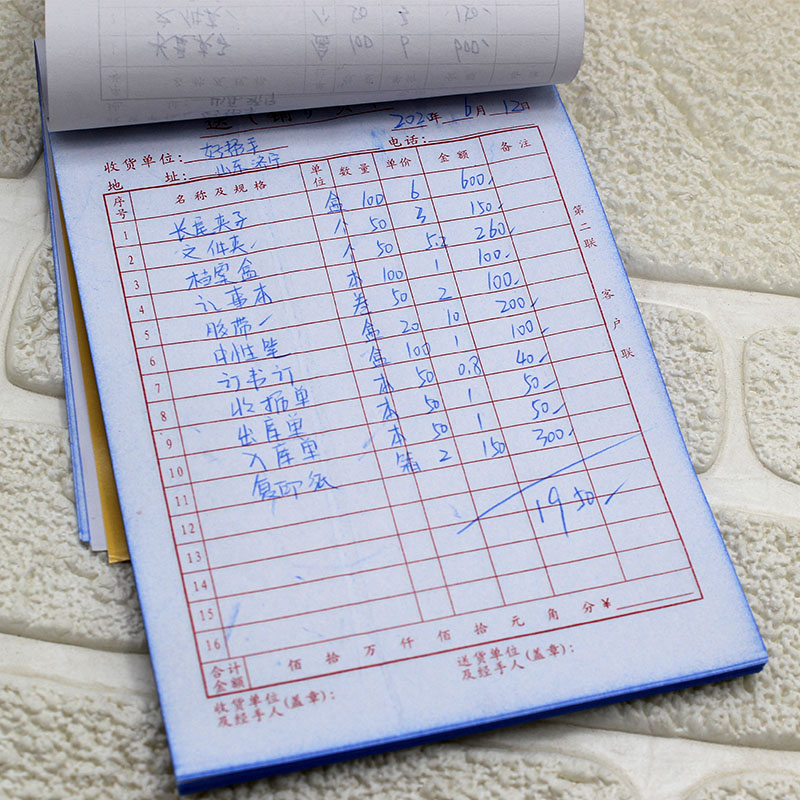 202 年 6 月 12 日
收货单位: 好帮手 电话:
地 址: 山东济宁
序号 名称及规格 单位 数量 单价 金额 备注
1 长尾夹子 盒 100 6 600
2 文件夹 个 50 3 150
3 档案盒 个 50 5.2 260
4 记事本 本 100 1 100
5 胶带 卷 50 2 100
6 中性笔 盒 20 10 200
7 订书订 盒 100 1 100
8 收据单 本 50 0.8 40
9 出库单 本 50 1 50
10 入库单 本 50 1 50
11 复印纸 箱 2 150 300
12 1950
13
14
15
16
合计金额 佰 拾 万 仟 佰 拾 元 角 分 ¥
收货单位及经手人(盖章): 送货单位及经手人(盖章):
第二联 客户联